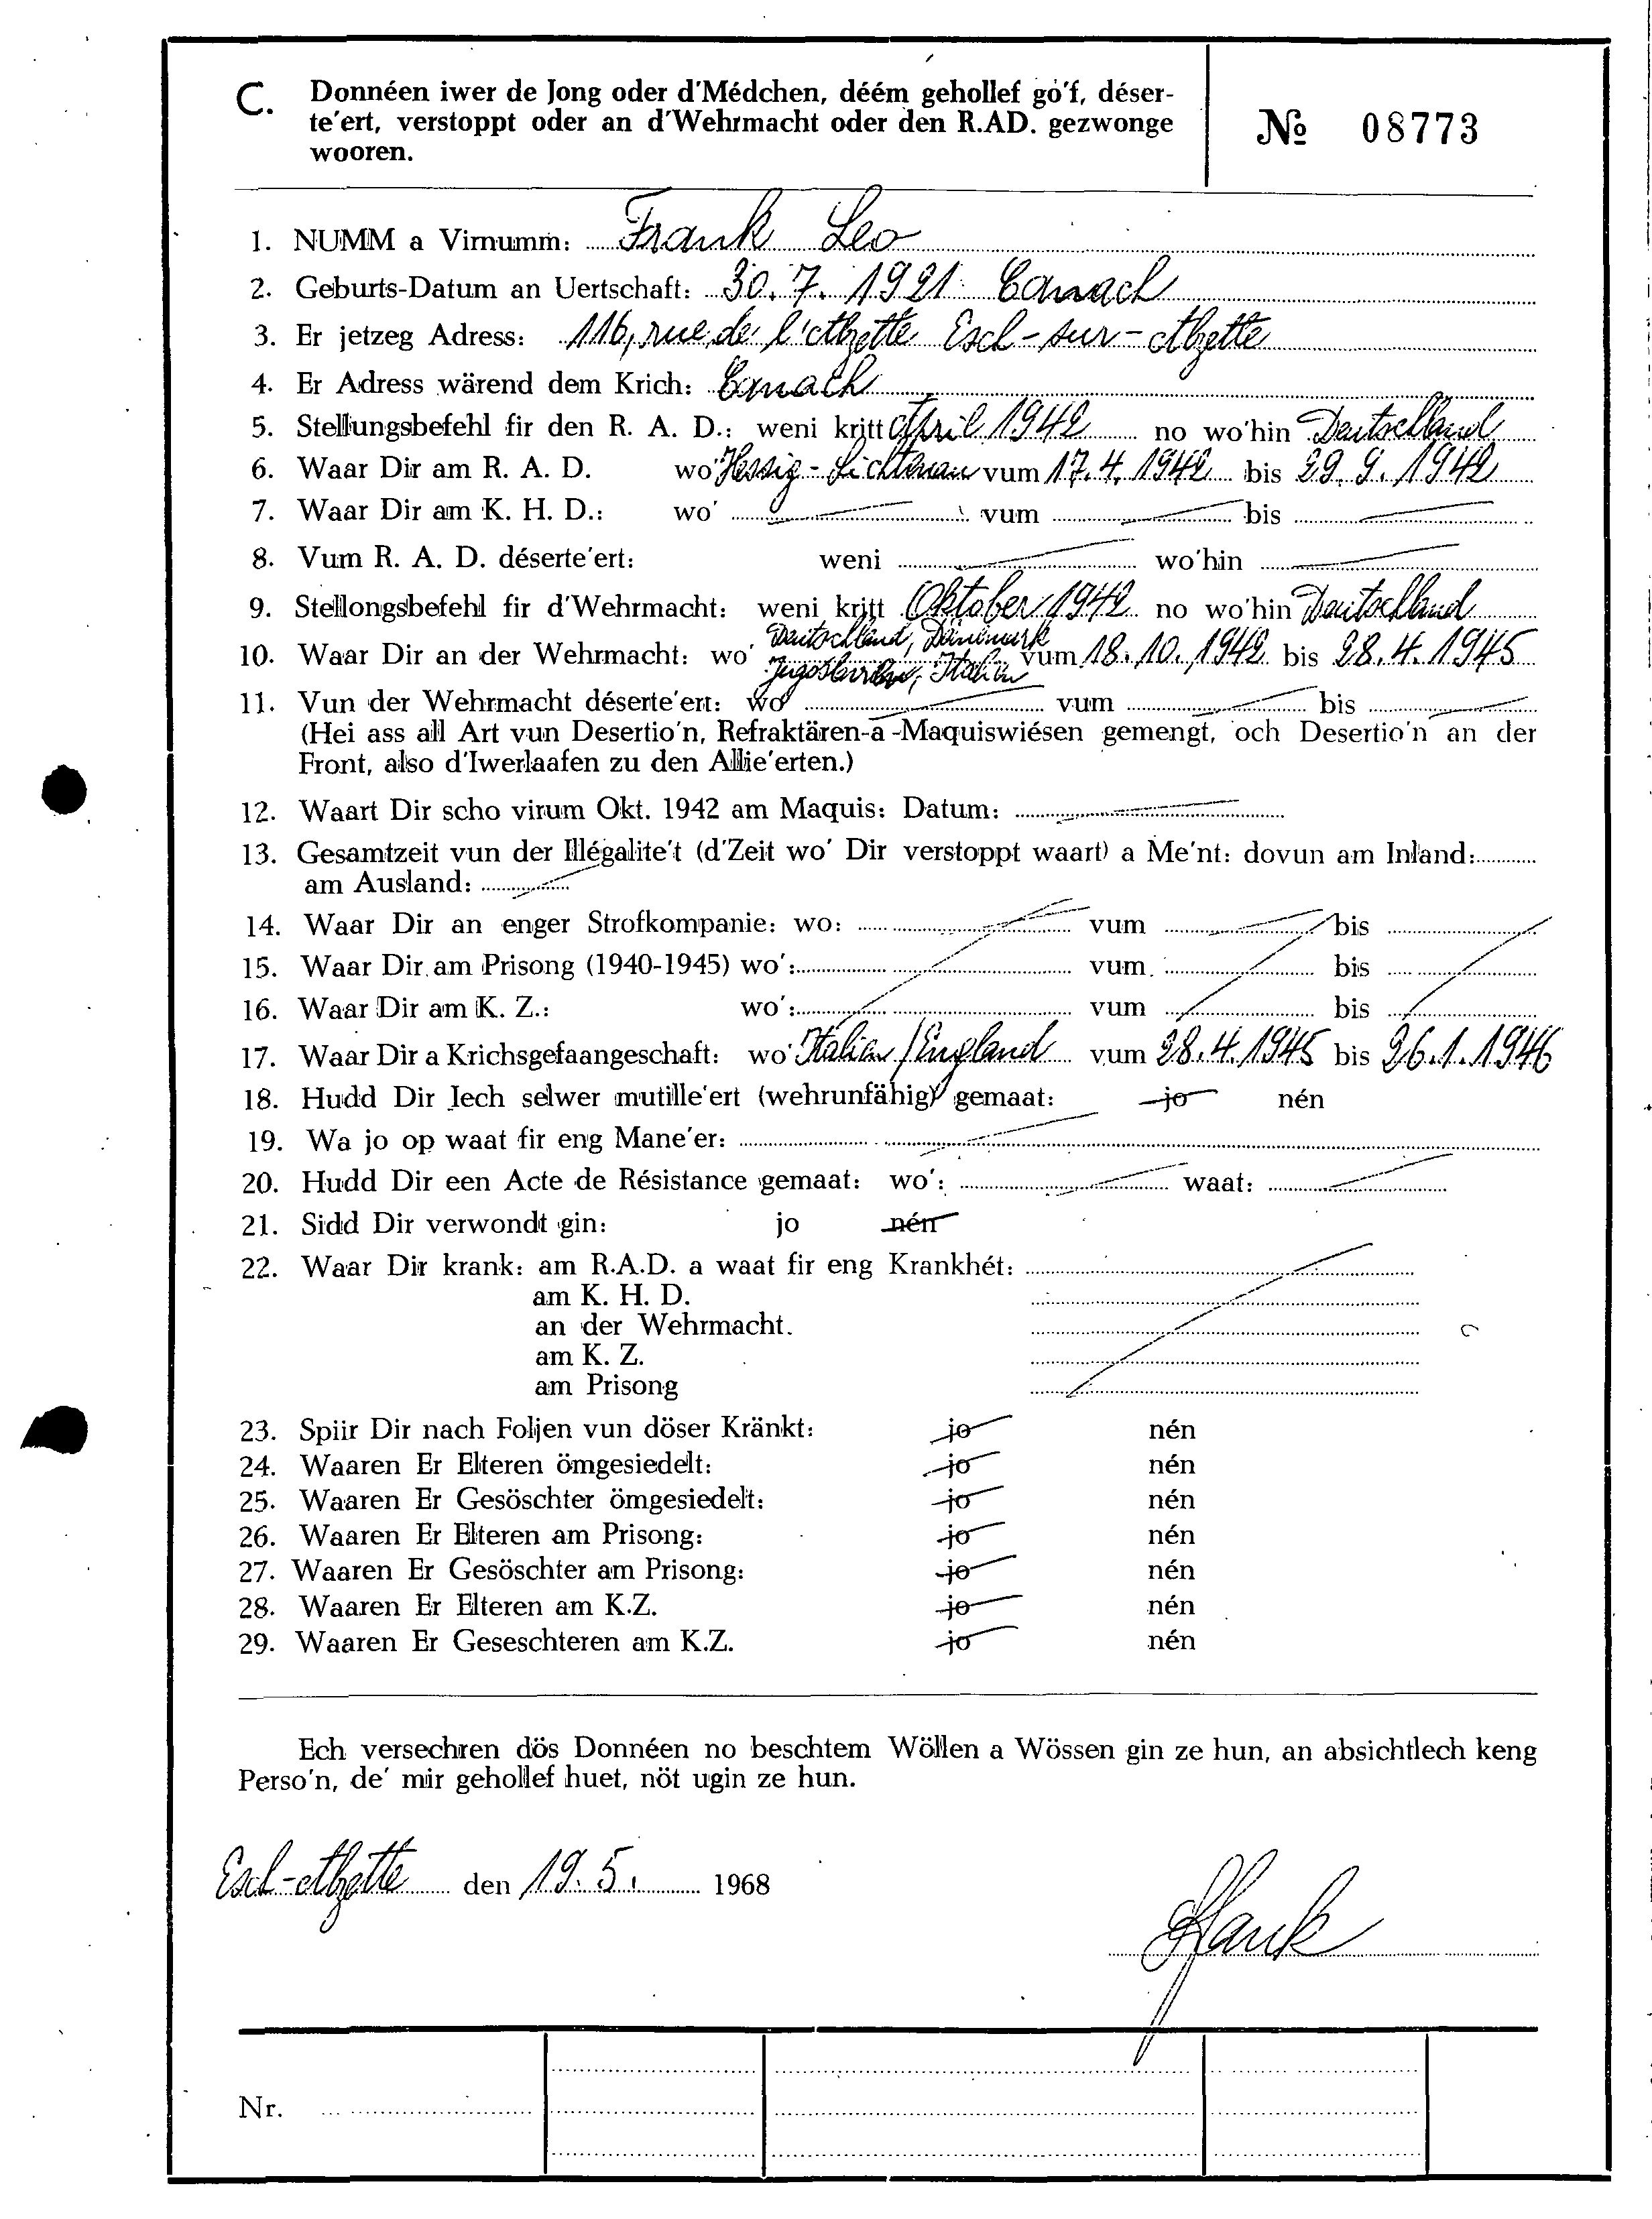 C. Donnéen iwer de Jong oder d'Médchen, déém gehollef go'f, déser-
te'ert, verstoppt oder an d'Wehrmacht oder den R.AD. gezwonge
wooren.
№ 08773
1. NUMM a Virnumm: Frank Leo
2. Geburts-Datum an Uertschaft: 30. 7. 1921 Canach
3. Er jetzeg Adress: 116, rue de l'Alzette Esch-sur-Alzette
4. Er Adress wärend dem Krich: Canach
5. Stellungsbefehl fir den R. A. D.: weni kritt April 1942 no wo'hin Deutschland
6. Waar Dir am R. A. D. wo' Hessig-Lichtenau vum 17.4.1942 bis 29.9.1942
7. Waar Dir am K. H. D.: wo' vum bis
8. Vum R. A. D. déserte'ert: weni wo'hin
9. Stellongsbefehl fir d'Wehrmacht: weni kritt Oktober 1942 no wo'hin Deutschland
10. Waar Dir an der Wehrmacht: wo' Deutschland, Dänemark Jugoslavien, Italien vum 18.10.1942 bis 28.4.1945
11. Vun der Wehrmacht déserte'ert: wo' vum bis
(Hei ass all Art vun Desertio'n, Refraktären-a-Maquiswiésen gemengt, och Desertio'n an der
Front, also d'Iwerlaafen zu den Allie'erten.)
12. Waart Dir scho virum Okt. 1942 am Maquis: Datum:
13. Gesamtzeit vun der Illégalite't (d'Zeit wo' Dir verstoppt waart) a Me'nt: dovun am Inland:
am Ausland:
14. Waar Dir an enger Strofkompanie: wo: vum bis
15. Waar Dir am Prisong (1940-1945) wo': vum bis
16. Waar Dir am K. Z.: wo': vum bis
17. Waar Dir a Krichsgefaangeschaft: wo' Italien/England vum 28.4.1945 bis 26.1.1946
18. Hudd Dir Iech selwer mutille'ert (wehrunfähig) gemaat: jo nén
19. Wa jo op waat fir eng Mane'er:
20. Hudd Dir een Acte de Résistance gemaat: wo': waat:
21. Sidd Dir verwondt gin: jo nén
22. Waar Dir krank: am R.A.D. a waat fir eng Krankhét:
am K. H. D.
an der Wehrmacht.
am K. Z.
am Prisong
23. Spiir Dir nach Foljen vun döser Kränkt: jo nén
24. Waaren Er Elteren ömgesiedelt: jo nén
25. Waaren Er Gesöschter ömgesiedelt: jo nén
26. Waaren Er Elteren am Prisong: jo nén
27. Waaren Er Gesöschter am Prisong: jo nén
28. Waaren Er Elteren am K.Z. jo nén
29. Waaren Er Geseschteren am K.Z. jo nén
Ech versechren dös Donnéen no beschtem Wöllen a Wössen gin ze hun, an absichtlech keng
Perso'n, de' mir gehollef huet, nöt ugin ze hun.
Esch-Alzette den 19.5. 1968
Frank
Nr.